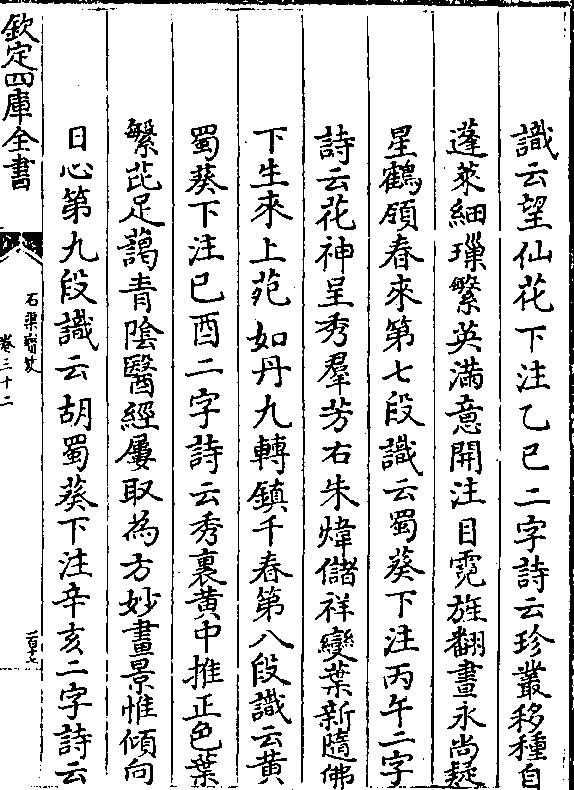 識云望仙花下注乙巳二字詩云珍叢移種自
蓬萊細璅繁英滿意開注目霓旌翻晝永尚疑
星鶴領春來第七段識云蜀葵下注丙午二字
詩云花神呈秀羣芳右朱煒儲祥變葉新隨佛
下生來上苑如丹九轉鎮千春第八段識云黄
蜀葵下注已酉二字詩云秀裏黄中推正色葉
繁芘足藹青陰醫經屢取為方妙畫景惟傾向
日心第九段識云胡蜀葵下注辛亥二字詩云
欽定四庫全書
石渠寳笈
卷三十二